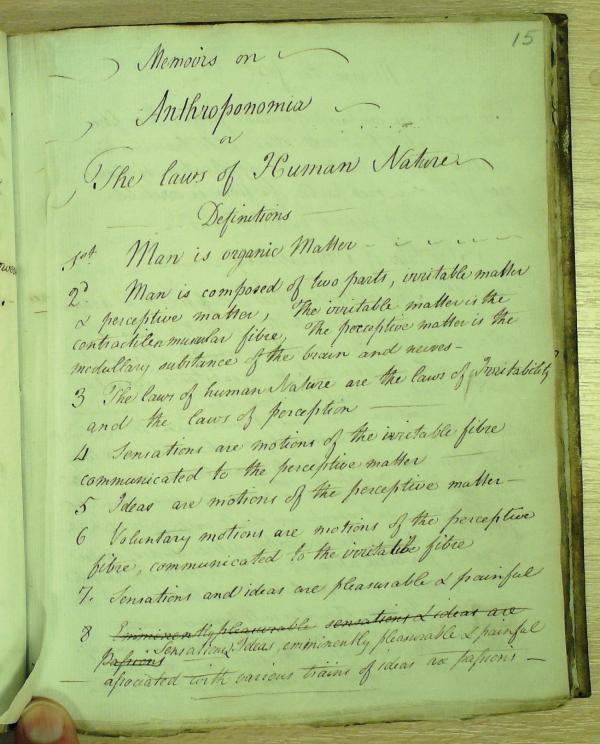 15
Memoirs on
Anthroponomia
or
The laws of Human Nature
Definitions
1st. Man is organic Matter
2d. Man is composed of two parts, irritable matter
& perceptive matter, The irritable matter is the
contractile muscular fibre, The perceptive matter is the
medullary substance of the brain and nerves -
3 The laws of human Nature are the laws of Irritability
and the laws of perception
4 Sensations are motions of the irritable fibre
communicated to the perceptive matter
5 Ideas are motions of the perceptive matter -
6 Voluntary motions are motions of the perceptive
fibre, communicated to the irritable fibre
7. Sensations and ideas are pleasurable & painful
8 Emminently pleasurable sensations & ideas are
passions Sensations & Ideas, eminently pleasurable & painful
associated with various trains of ideas are passions -